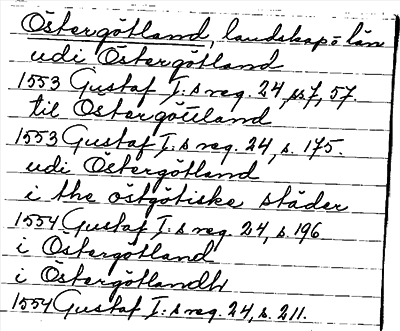 Östergötland, landskap o län
udi Östergötland
1553 Gustaf I:s reg. 24, s. 7, 57.
til Östergöttland
1553 Gustaf I:s reg. 24, s. 175.
udi Östergötland
i the östgötiske städer
1554 Gustaf I:s reg. 24, s. 196
i Östergötland
i Östergötlandh
1554 Gustaf I:s reg. 24, s. 211.